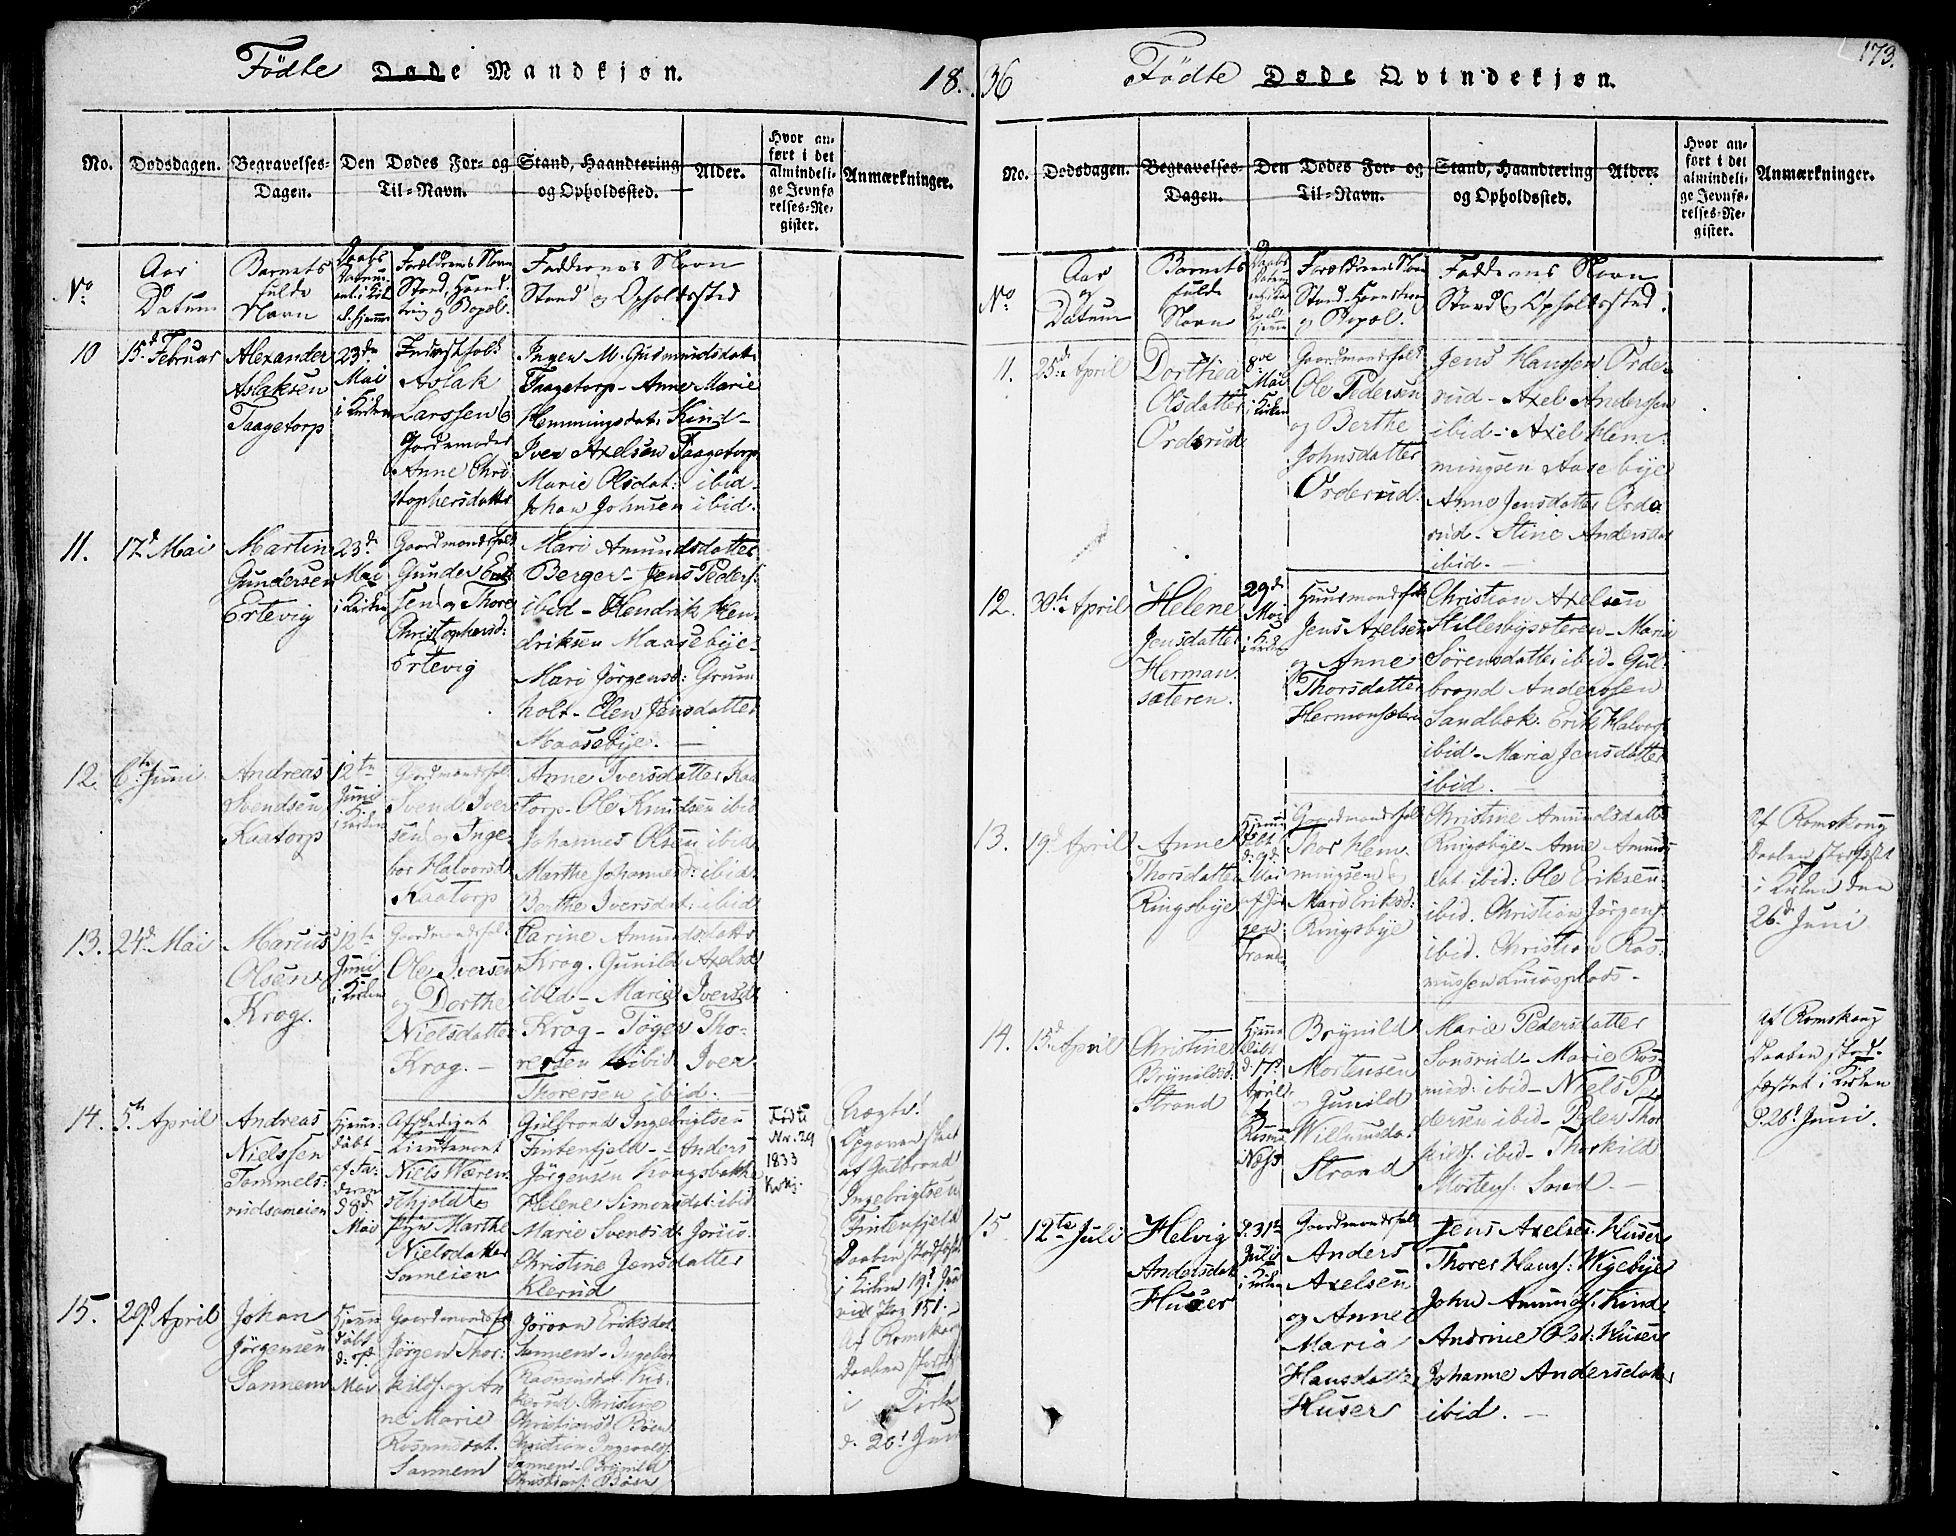 Födte Døde Mandkjøn.
18.
No.
Dødsdagen.
Begravelses-
Dagen.
Den Dødes For- og
Til-Navn.
Stand, Haandtering
og Opholdssted.
Alder.
Hvor an-
ført i det
almindeli-
ge Jevnfø
relses-Re-
gister.
Anmærkninger.
No
Aar
og
Datum
Barnets
fulde
Navn
Daabs
Datum
Forældrenes Navn
Stand, Haand-
tring og Bopæl.
Faddernes Navn
Stand og Opholdssted
10
15d Februar
Alexander
Aslaksen
Taagetorp
23de
Mai
i Kirken
Inderstfolk
Aslak
Larssen og
Gordemoder
Anne Chri
stophersdatter
Ingen M. Gudmundsdat:
Taagetorp - Anne Marie
Hemmingsdat: Kind -
Iver Axelsen Taagetorp
Marie Olsdat: ibid -
Johan Johnsen ibid.
11.
17d Mai
Martin
Gundersen
Ertevig
23de
Mai
i Kirken
Gaardmandsfolk
Gunder Erik
sen og Thore
Christophersd:
Ertevig
Mari Amundsdatter
Berger - Jens Peders:
ibid - Hendrik Hen-
driksen Maasebye -
Mari Jörgensd: Grum
holt - Elen Jensdatter
Maasebye. -
12.
6te Juni
Andreas
Svendsen
Kaatorp
12te
Juni
i Kirken
Gaardmandsfolk
Svend Iver
sen og Inge-
bor Halvorsd
Kaatorp
Anne Iversdatter Kaa
torp - Ole Knudsen ibid
Johannes Olsen ibid
Marthe Johannesd: ibid.
Berthe Iversdat: ibid
13.
24d Mai
Marcus
Olsen
Krog.
12te
Juni
i Kirken
Gaardmandsfolk
Ole Iversen
og Dorthe
Nielsdatter
Krog. -
Carine Amundsdatter
Krog. Gunild Axelsd
ibid - Maria Iversd
Krog - Töger Tho-
resen ibid Iver
Thoresen ibid.
14.
5te April
Andreas
Nielssen
Tommels-
rudsameien
Hjemme-
döbt
d 8d
Mai
Afskediget
Lieutenant
Niels Wæren-
skjold og
Marthe
Nielsdatter
Sameien
Gulbrand Ingebrigtsen
Fintenfjeld - Anders
Jörgensen Kragsbakke
Helene Simonsdat: ibid
Marie Svendsd:
Christine Jensdatter
Klerud
Födte
Nr. 29
1833
Uægte!
Opgaven
af Gulbrand
Ingebrigtsen
Fintenfjeld
Daaben stadfæstet
i Kirken 19d
Pag 151. -
15.
29d April
Johan
Jörgensen
Sannem
Hjemme
döbt
Mai
Gaardmandsfolk
Jörgen Thor-
kilds. og An
ne Marie
Rasmusdat.
Sannem
Jöran Eriksdat
Sannem - Ingebor
Rasmusdat
Christine
Christiansd Böen
Christian
Sannem - Brynild
Christians: Böen
Af Romskoug
Daaben stadfæstet
i Kirken
d. 26d Juni
36
Födte Døde Qvindekjøn.
173.
No.
Dødsdagen.
Begravelses-
Dagen.
Den Dødes For- og
Til-Navn.
Stand, Haandtering
og Opholdssted.
Alder.
Hvor an-
ført i det
almindeli-
ge Jevnfø-
relses-Re-
gister.
Anmærkninger.
No
Aar
og
Datum
Barnets
fulde
Navn
Daabs
Datum
Forældrenes Navn
Stand, Haandtering
og Bopæl.
Faddernes Navn
Stand og Opholdssted.
11.
25de April
Dorthea
Olsdatter
Orderud
8de
Mai
i Kirken
Gaardmandsfolk
Ole Pedersen
og Berthe
Johnsdatter
Orderud.
Jens Hanssen Orde-
rud - Axel Anderssen
ibid - Axel Hem-
mingsen Aasebye
Anne Jensdatter Orde
rud - Stine Andersdat
ibid. -
12.
30te April
Helene
Jensdatter
Herman-
sæteren.
29de
Mai
i Kirken
Huusmandsfolk
Jens Axelsen
og Anne
Thorsdatter
Hermansæteren
Christian Axelsen
Hillesbysæteren - Maria
Sörensdatter ibid - Gul-
brand Anderssen
Sandbæk. Erik Halvors:
ibid - Maria Jensdatter
ibid. -
13.
19d April
Anne
Thorsdatter
Ringsbye
Hjemme
döbt
d. 9d
Mai
af Jör
gen
Gaardmandsfolk
Thor Hem-
mingsen og
Mari Eriksd:
Ringsbye
Christine Amundsdatter
Ringsbye - Anne Amunds
dat. ibid: Ole Eriksen
ibid. Christian Jörgens:
ibid. Christian Ras-
mussen
Af Romskoug
Daaben stadfæstet
i Kirken den
26d Juni
14.
15d April
Christine
Brynildsd.
Strand
Hjemme
döbt
d. 17d
April
af
Rasmus
Næss
Brynild
Mortensen
og Gunild
Strand
Marie Pedersdatter
Sansrud - Marie Ras-
musd: ibid - Niels Pe-
dersen ibid - Peder Thor
kilds. ibid - Thorkild
Mortens: Sand. -
Af Romskoug
Daaben stad-
fæstet i Kirken
d. 26d Juni.
15
12te Juli
Helvig
Andersdat
Huser
d. 31te
Juli
i Kirken
Gaardmandsfolk
Anders
Axelsen
og Anne
Maria
Hansdatter
Huser
Jens Axelsen Huser
Thores Hans: Wigebye
John Amunds: Kind
Andrine Olsd: Huser
Johanne Andersdatter
ibid. -